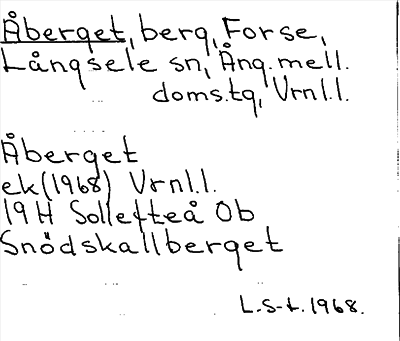 Åberget, berg, Forse,
Långsele sn, Ång. mell.
doms.tg, Vrnl.l.
Åberget
ek (1968) Vrnl.l.
19 H Sollefteå Ob
Snödskallberget
L.S-t. 1968.